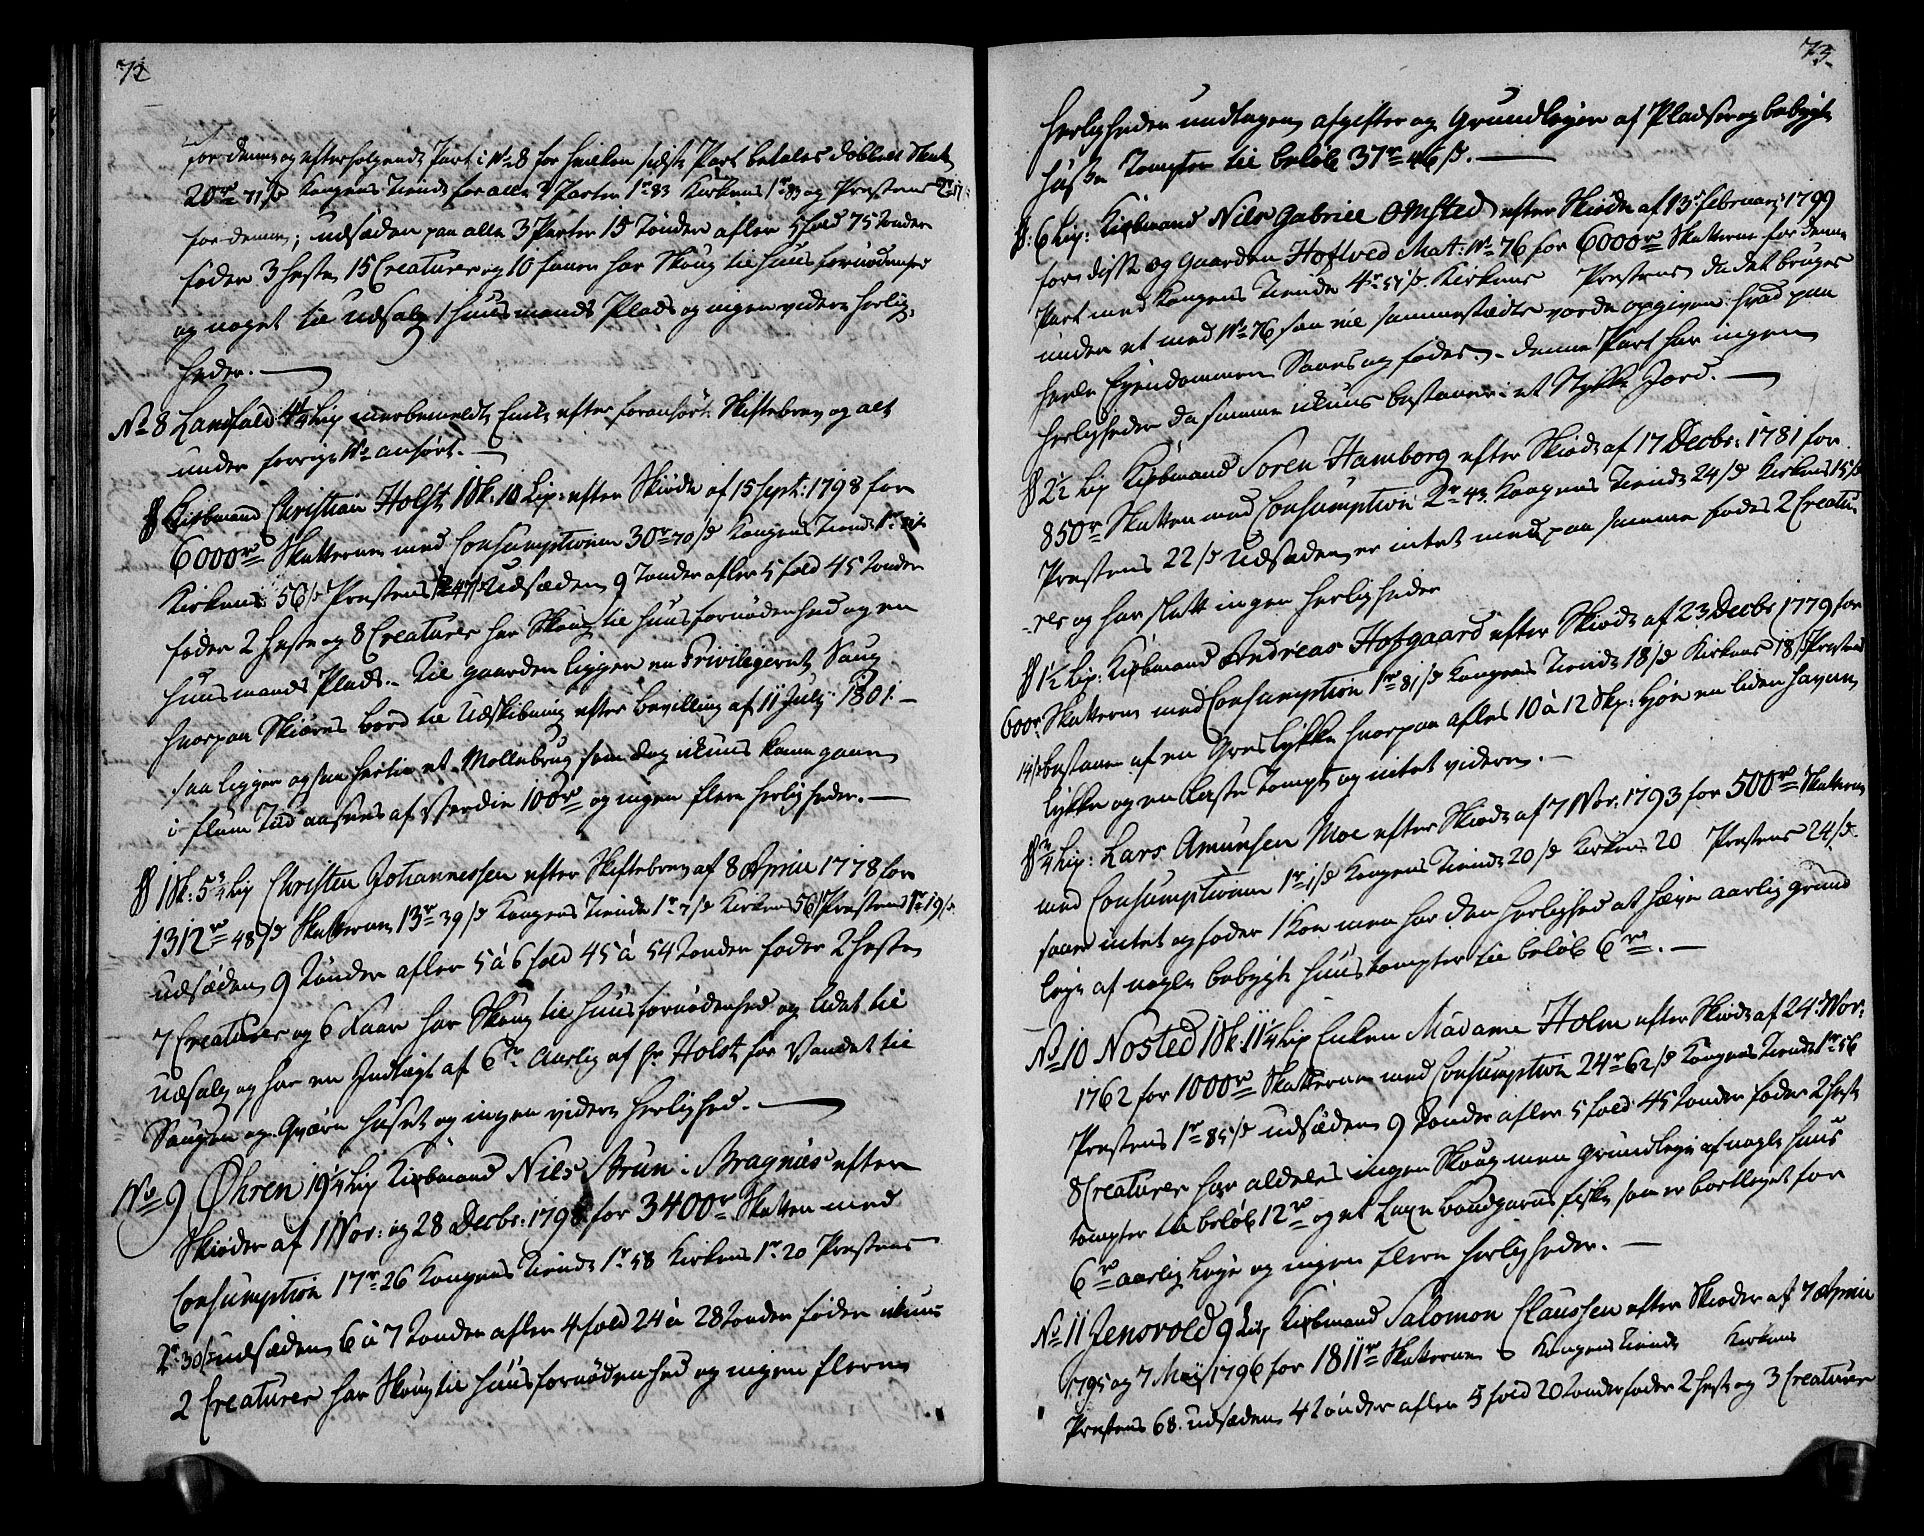 72
for denne og efterfølgende Part i No 8 for hvilken sidste Part betales dobbelt Skatt
20r 71 s Kongens Tiende for alle 3 Parter 1r 83 Kirkens 1r 83 og Præstens 2r 17
for denne; udsæden paa alle 3 Parter 15 Tønder afler 5 fold 75 tønder
føder 3 heste 15 Creaturer og 10 faarer har Skoug til huus fornødenhed
og noget til udsalg 1 huusmands Plads og ingen videre herlig-
heder.
No 8 Landfald 4 1/4 Lip merbemeldte Enke efter foranførte Skiftebrev og alt
under forrige No anført.
§ Kiøbmand Christian Holst 1 sk: 10 Lip: efter Skiøde af 15 Sept: 1798 for
6000r Skatterne med Consumptionen 30r 70 s Kongens Tiende 1r
Kirkens 56 s Præstens Udsæden 9 Tønder afler 5 fold 45 Tønder
føder 2 heste og 8 Creaturer har Skoug til huusfornødenhed og en
huusmands Plads. til gaarden ligger en Privilegeret Saug
hvorpaa Skiæres bord til Udskibning efter bevilling af 11 July 1801. -
saa ligger ogsaa hertil et Møllebrug som dog ikuns kann gaae
i flom Tid ansees af Værdie 100r og ingen flere herligheder.
§ 1 sk: 5 3/4 Lip Christen Johannessen efter Skiftebrev af 8 April 1778 for
1312r 48 s Skatterne 13r 39 s Kongens Tiende 1r 7 s Kirkens 56 s Præstens 1r 19 s.
udsæden 9 Tønder afler 5 á 6 fold 45 á 54 Tønder føder 2 heste
7 Creaturer og 6 Faar har Skoug til huusfornødenhed og lidet til
udsalg og har en Indtægt af 6r Aarlig af Hr. Holst for Vandet til
Saugen og Qværn huset og ingen videre herlighed.
No 9 Øhren 19 1/4 Lip Kiøbmand Niels Brun i Bragnæs efter
Skiøder af 1 Nov: og 28 Decbr: 179 for 3400r Skatten med
Consumption 17r 26 Kongens Tiende 1r 58 Kirkens 1r 20 Præstens
2r 30 s udsæden 6 á 7 tønder afler 4 fold 24 á 28 tønder føder ikuns
2 Creaturer har Skoug til huusfornødenhed og ingen flere
73
herligheder undtagen afgifter og Grundleyer af Pladser og bebygte
huse Tomter til beløb 37r 46 s.
§: 6 Lip: Kiøbmand Niels Gabriel Omsted efter Skiøde af 13 February 1799
for disse og Gaarden Hoftved Mat: No 76 for 6000r Skatterne for denne
Part med Kongens Tiende 4r 51 s. Kirkens Præstens da det bruges
under et med No 76 saa vil sammestæds vorde opgiven hvad paa
hele Eyendommen Saaes og fødes. denne Part har ingen
herligheder da samme ikuns bestaaer i et Stykke Jord.
§ 2 1/2 Lip Kiøbmand Søren Hamborg efter Skiøde af 17 Decbr: 1781 for
850r Skatten med Consumption 2r 43. Kongens Tiende 24 s Kirkens 15 s
Præstens 22 s Udsæden er intet med paa samme fødes 2 Creatu-
-rer og har slett ingen herligheder
§ 1 1/2 Lip: Kiøbmand Andreas Hofgaard efter Skiøde af 23 Decbr 1779 for
600r Skatterne med Consumption 1r 81 s Kongens Tiende 18 s Kirkens 18 s Præstens
14 s bestaaer af en Græs lykke hvorpaa afles 10 á 12 Skp: Høe en liden havne
lykke og en Tompt og intet videre.
§ 3/4 Lip: Lars Amunsen Moe efter Skiøde af 7 Nov. 1793 for 500r Skatterne
med Consumptionen 1r 1 s Kongens Tiende 20 s Kirkens 20 Præstens 24 s.
saaer intet og føder 1 Koe men har den herlighed at hæve aarlig grund
leye af nogle bebygte huus tompter til beløb 6r.
No 10 Nøsted 1 sk: 11 1/4 Lip Enken Madame Holm efter Skiøde af 24 Nov:
1762 for 1000r Skatterne med Consumption 24r 62 s Kongens Tiende 1r 56
Præstens 1r 85 s udsæden 9 Tønder afler 5 fold 45 tønder føder 2 heste
8 Creaturer har aldeles ingen Skoug men grundleye af nogle huus
tompter til beløb 12r og et Laxe vaadgarns fiske som er bortleyet for
6r aarlig leye og ingen flere herligheder.
No 11 Jensvold 9 Lip Kiøbmand Salomon Claussen efter Skiøder af 7 April
1795 og 7 Maij 1796 for 1811r Skatterne Kongens Tiende Kirkens
Præstens 68. udsæden 4 tønder afler 5 fold 20 tønder føder 2 heste og 3 Creaturer